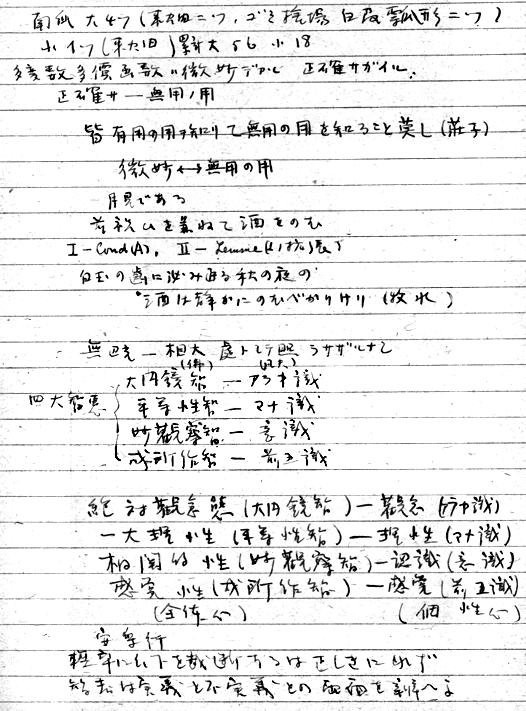 南瓜 大4ツ(東畑ニツ, ゴミ捨場 白殻瓢形ニツ)
小1ツ(東畑)累計大56 小18
多変数多価函数ハ微妙デアル 正確サガイル.
正確サ—無用ノ用
皆有用の用を知りて無用の用を知ること莫し(荘子)
微妙↔無用の用
月見である
を兼ねて酒をのむ
I-Cond(A), II-
白玉の歯に泌み透る秋の夜の
酒は静かにのむべかりけり(牧水)
無 — 相大 處トシテ照ラサザルナシ
四大智恵
大円鏡智 — アラヤ識
平等性智 — マナ識
妙観察智 — 意識
成所作智 — 前五識
絶対観念態(大円鏡智)—観念(アラヤ識)
一大理性(平等性智)—理性(マナ識)
相関的性(妙観察智)—認識(意識)
感覚性(成所作智)—感覚(前五識)
(全体心) (個性心)
安楽行
軽率に以下を裁断するは正しきにあらず
智者は実義と不実義との両面を